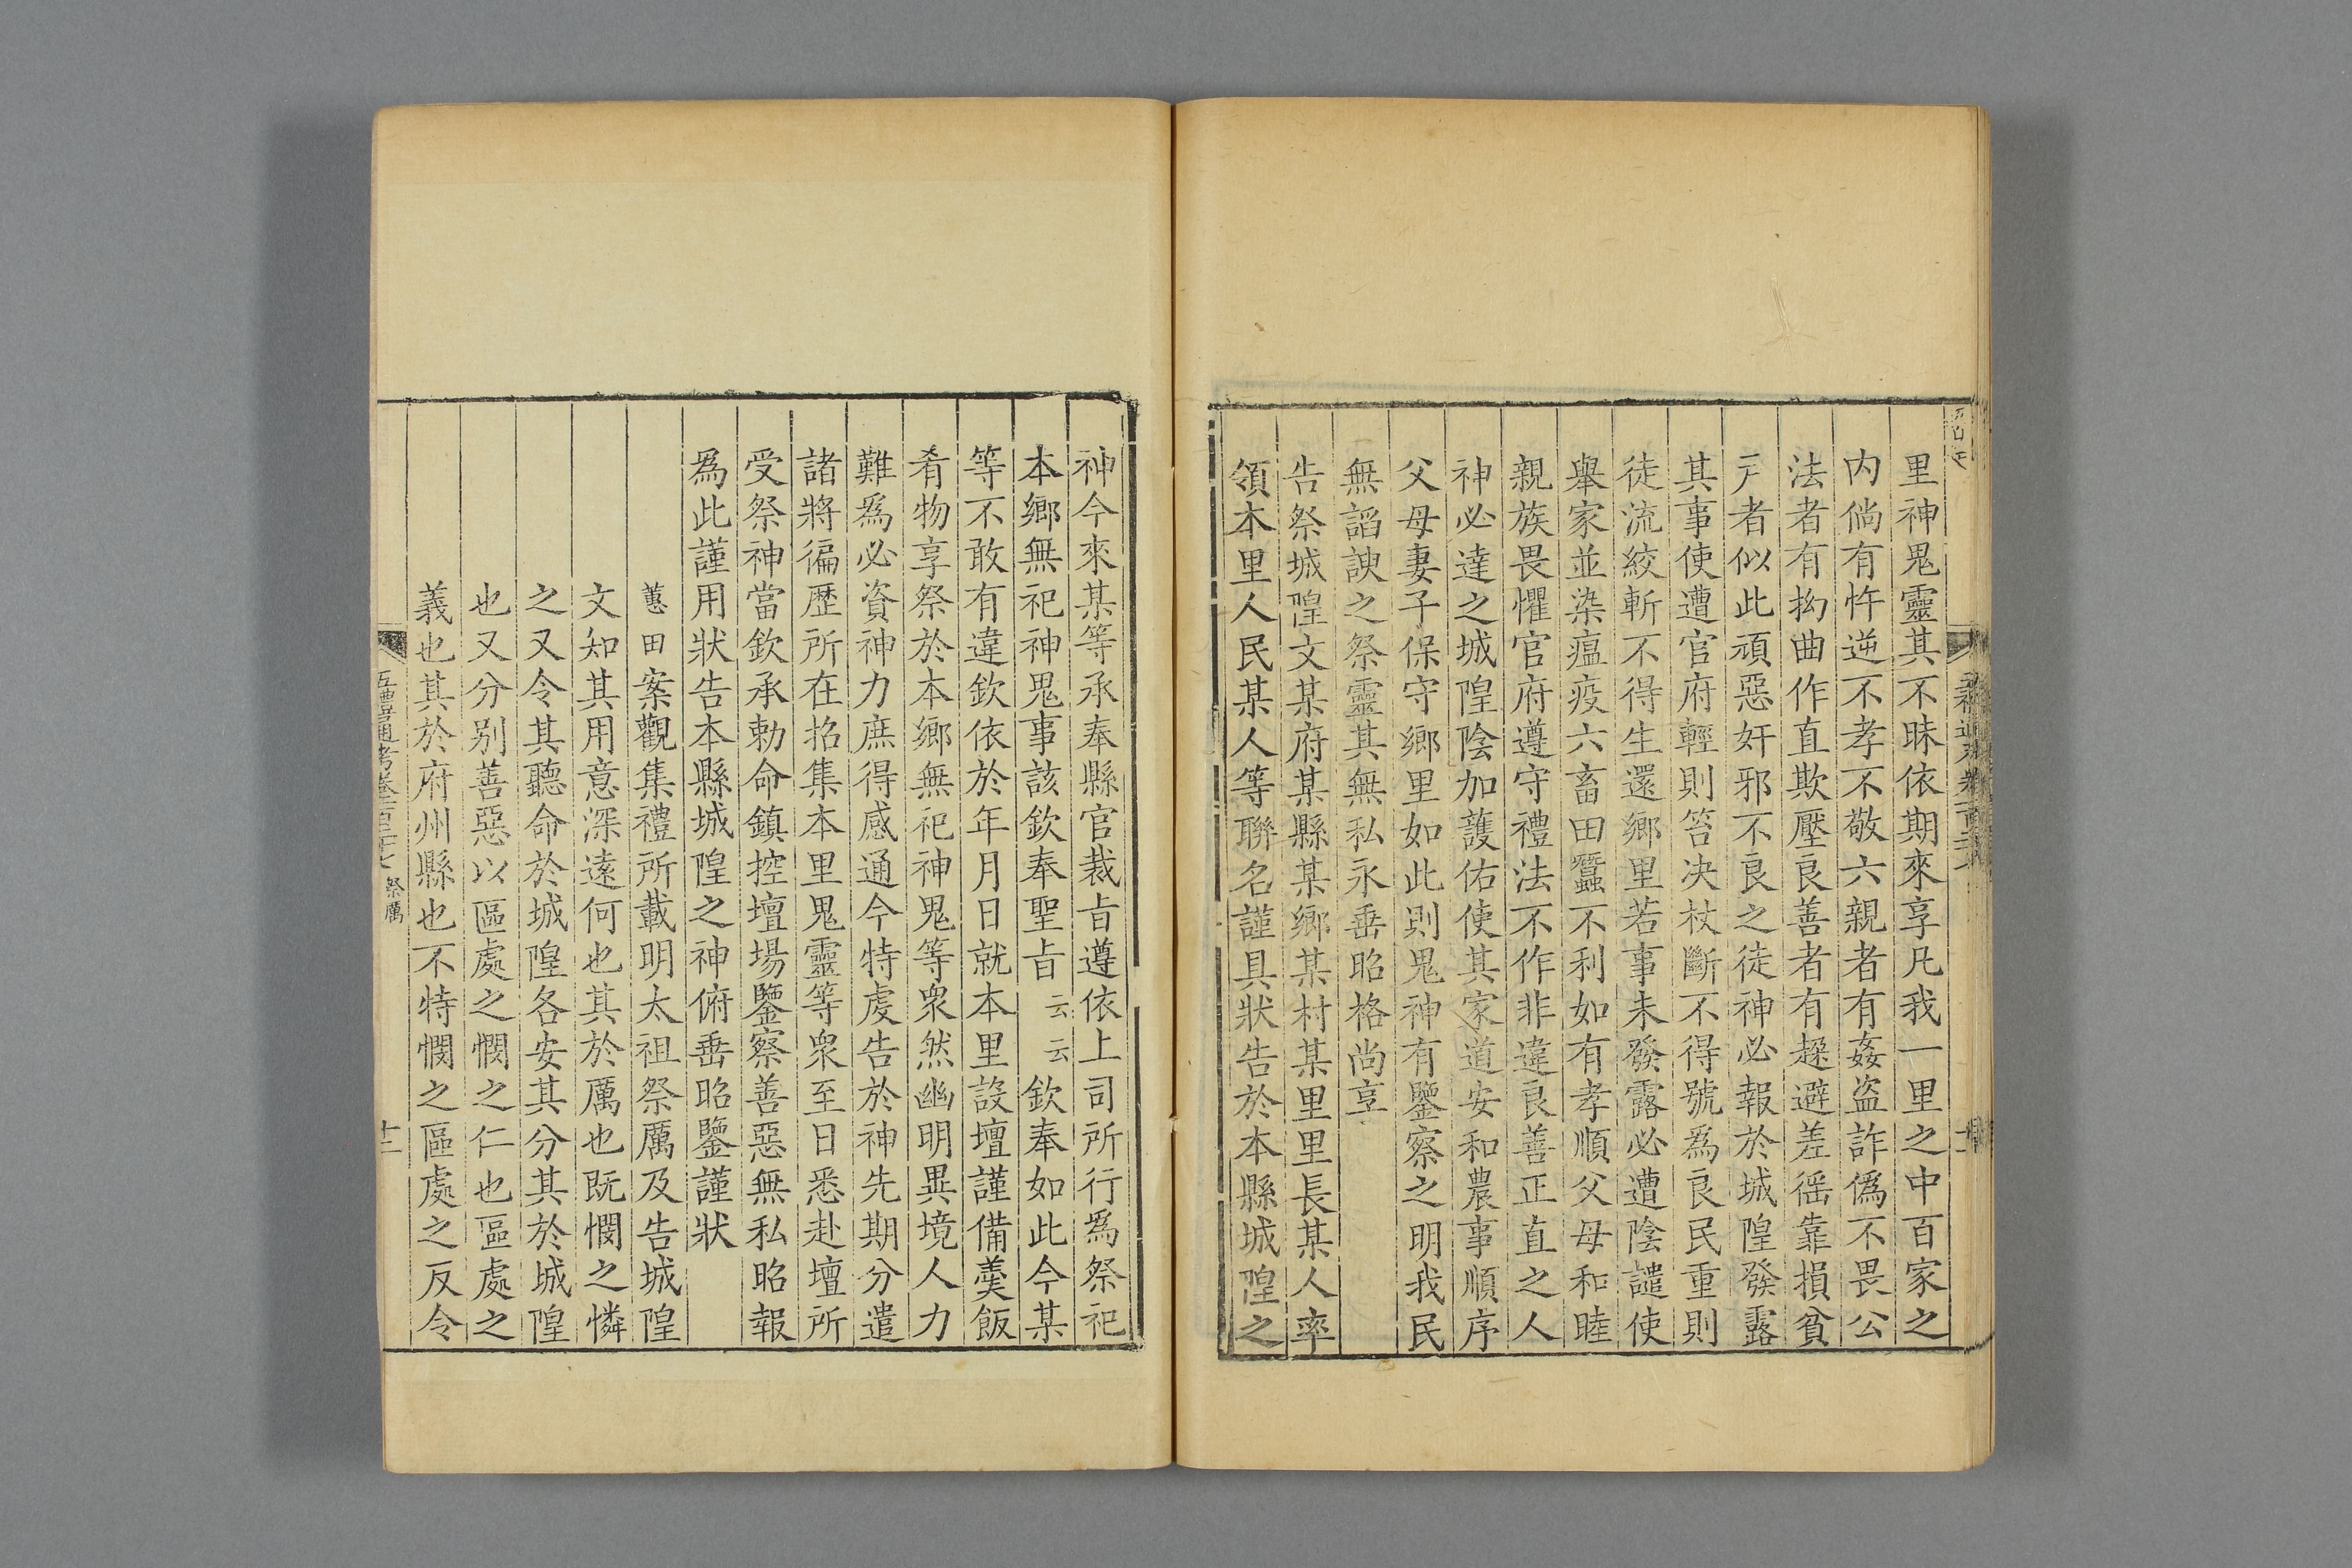 里神鬼靈其不昧依期來享凡我一里之中百家之
内倘有忤逆不孝不敬六親者有姦盗詐偽不畏公
法者有拗曲作直欺壓良善者有趓避差徭靠損貧
户者似此頑惡奸邪不良之徒神必報於城隍發露
其事使遭官府輕則笞决杖斷不得號爲良民重則
徒流絞斬不得生還鄉里若事未發露必遭陰譴使
舉家並染瘟疫六畜田蠶不利如有孝順父母和睦
親族畏懼官府遵守禮法不作非違良善正直之人
神必達之城隍陰加護佑使其家道安和農事順序
父母妻子保守鄉里如此則鬼神有鑒察之明我民
無謟諛之祭靈其無私永垂昭格尚享
告祭城隍文某府某縣某鄉某村某里里長某人率
領本里人民某人等聯名謹具狀告於本縣城隍之
神今來某等承奉縣官裁㫖遵依上司所行爲祭祀
本鄉無祀神鬼事該欽奉聖㫖云云欽奉如此今某
等不敢有違欽依於年月日就本里設壇謹備羹飯
肴物享祭於本鄉無祀神鬼等衆然幽明異境人力
難爲必資神力庶得感通今特虔告於神先期分遣
諸將徧歴所在招集本里鬼靈等衆至日悉赴壇所
受祭神當欽承勅命鎮控壇場鑒察善惡無私昭報
爲此謹用狀告本縣城隍之神俯垂昭鑒謹狀
蕙田案觀集禮所載明太祖祭厲及告城隍
文知其用意深遠何也其於厲也既憫之憐
之又令其聽命於城隍各安其分其於城隍
也又分别善惡以區處之憫之仁也區處之
義也其於府州縣也不特憫之區處之反令
五禮通考卷一百二十七 祭厲
十二